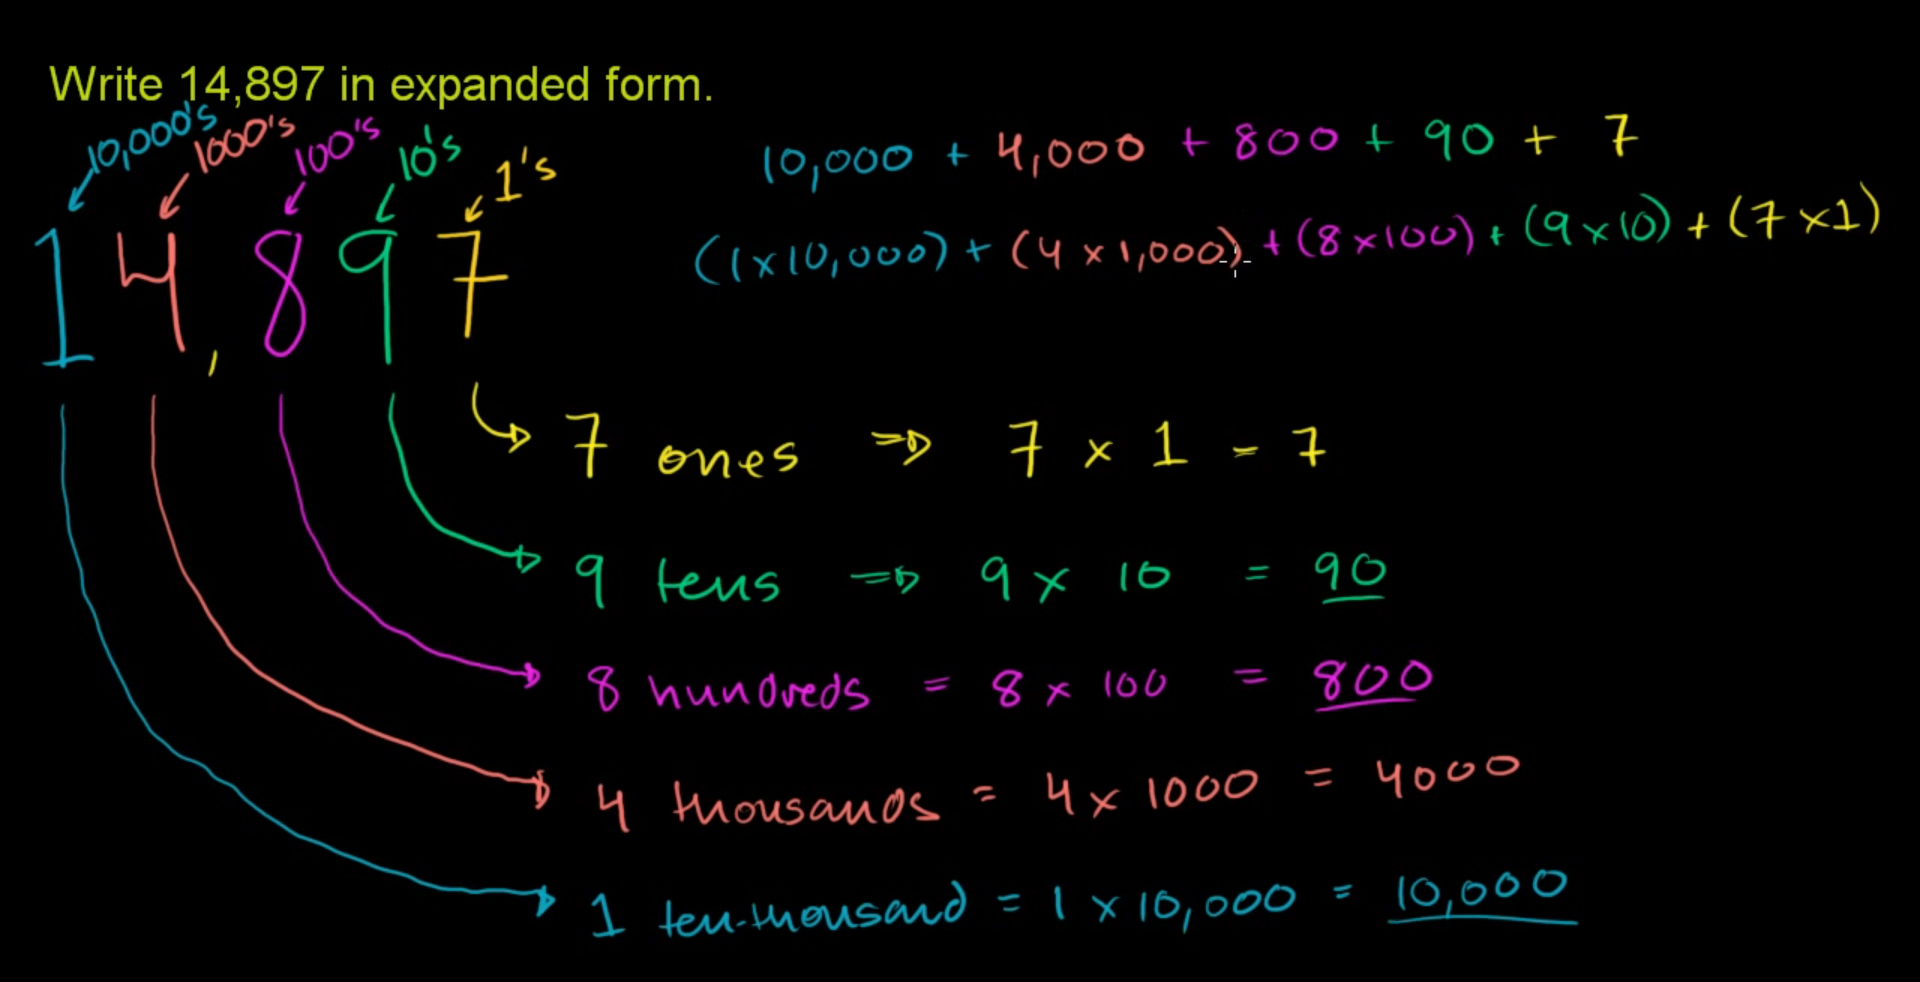 Write 14,897 in expanded form.
10,000's 1000's 100's 10's 1's
10,000 + 4,000 + 800 + 90 + 7
14,897
(1x10,000) + (4 x 1,000) + (8x100) + (9x10) + (7x1)
7 ones ⇒ 7 x 1 = 7
9 tens ⇒ 9 x 10 = 90
8 hundreds = 8 x 100 = 800
4 thousands = 4 x 1000 = 4000
1 ten-thousand = 1 x 10,000 = 10,000